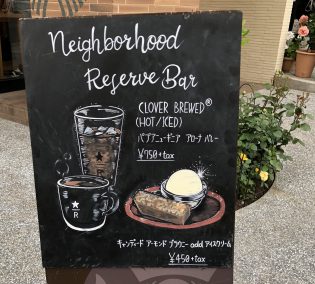 Neighborhood
Reserve Bar
CLOVER BREWED®
(HOT/ICED)
パプアニューギニア アローナ バレー
¥750+tax
R
R
キャンディード アーモンド ブラウニー add アイスクリーム
¥450+tax